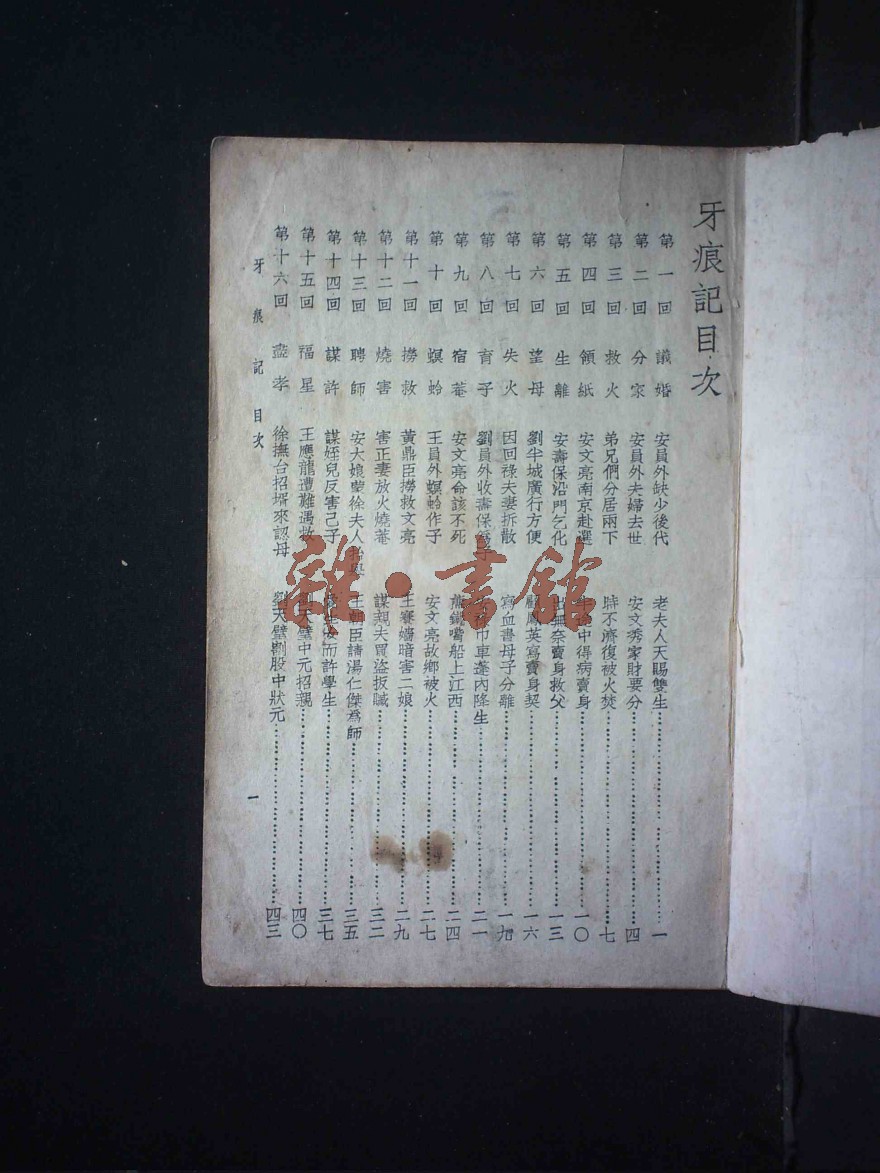 牙痕記目次
第一回 議婚 安員外缺少後代 老夫人天賜雙生 一
第二回 分家 安員外夫婦去世 安文秀家財要分 四
第三回 救火 弟兄們分居兩下 時不濟復被火焚 七
第四回 領紙 安文亮南京赴選 中得病賣身 一〇
第五回 生離 安壽保沿門乞化 出無奈賣身救父 一三
第六回 望母 劉半城廣行方便 顧鳳英寫賣身契 一六
第七回 失火 因回祿夫妻拆散 寫血書母子分離 一九
第八回 育子 劉員外收壽保 巾車蓬內降生 二一
第九回 宿菴 安文亮命該不死 鐵嘴船上江西 二四
第十回 螟蛉 王員外螟蛉作子 安文亮故鄉被火 二七
第十一回 撈救 黃鼎臣撈救文亮 王賽嬙暗害二娘 二九
第十二回 燒害 害正妻放火燒菴 謀親夫買盜扳贓 三二
第十三回 聘師 安大娘蒙徐夫人抬舉 王朝臣請湯仁傑為師 三五
第十四回 謀許 謀姪兒反害己子 而許學生 三七
第十五回 福星 王應龍遭難遇救 劉天璧中元招親 四〇
第十六回 盡孝 徐撫台招壻來認母 劉天璧割股中狀元 四三
牙痕記目次 一
雜·書館